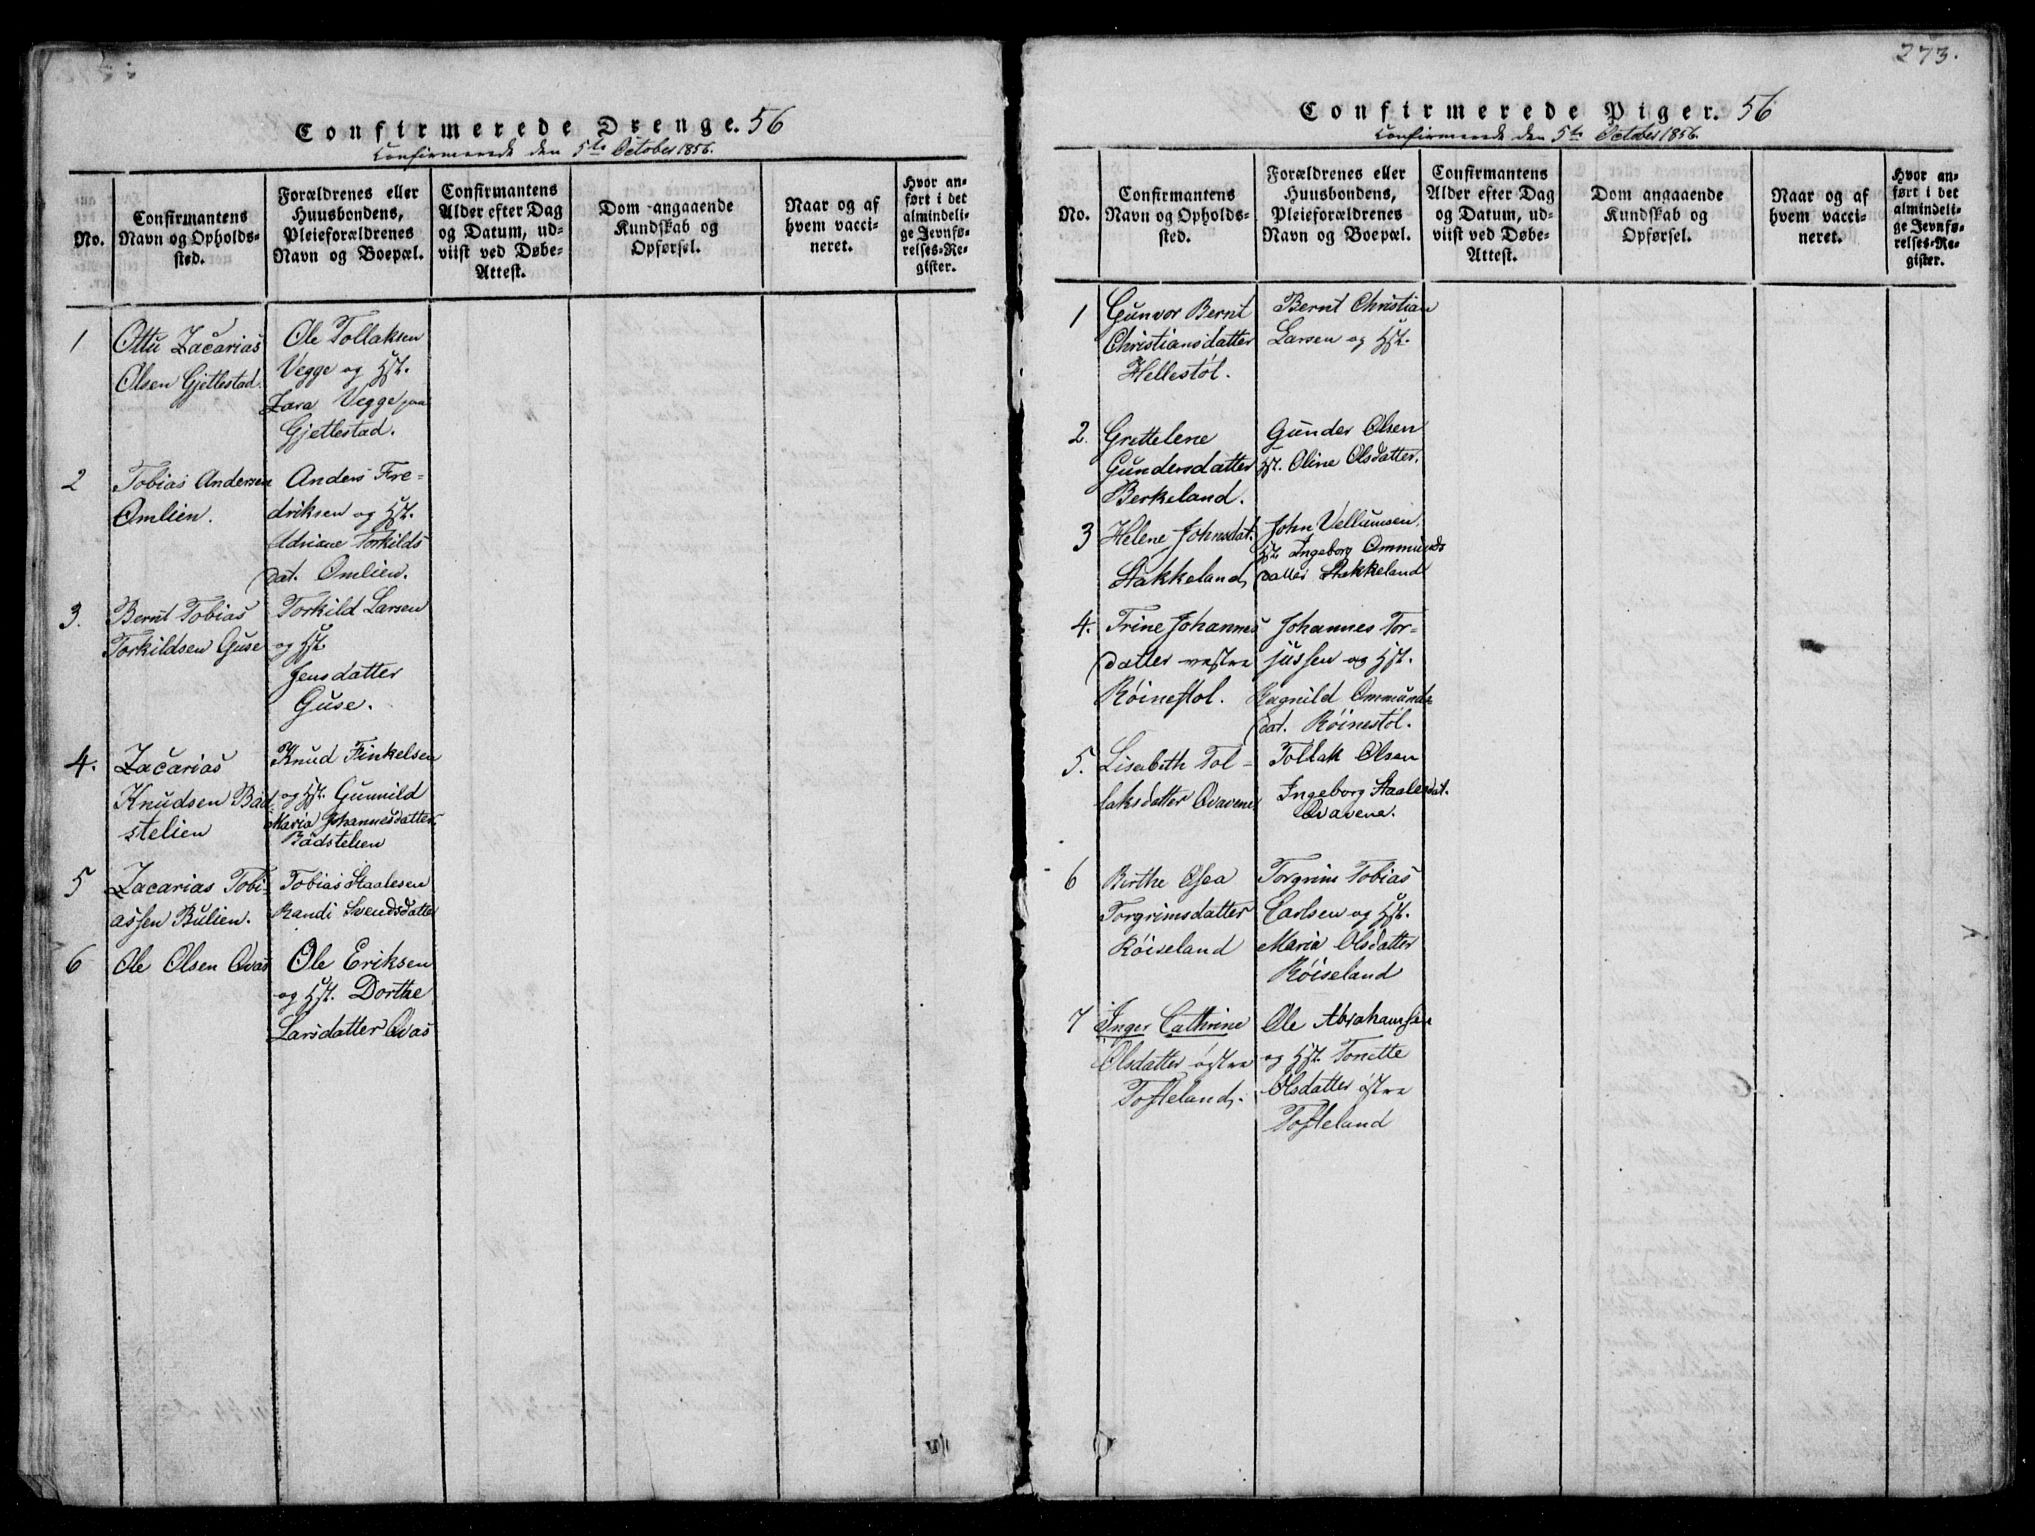 Confirmerede Drenge. 56
Confirmerede den 5te October 1856.
No.
Confirmantens
Navn og Opholds-
sted.
Forældrenes eller
Huusbondens,
Pleieforældrenes
Navn og Boepæl.
Confirmantens
Alder efter Dag
og Datum, ud-
viist ved Døbe-
Attest.
Dom angaaende
Kundskab og
Opførsel.
Naar og af
hvem vacci-
neret.
Hvor an-
ført i det
almindeli-
ge Jevnfø-
relses-Re-
gister.
1
Otto Zacarias
Olsen Gjetlestad
Ole Tollaksen
Vegge og Hst.
Zara Vegge paa
Gjetlestad.
2
Tobias Andersen
Omlien.
Anders Fre-
driksen og Hst.
Adriane Torkilds
dat. Omlien.
3.
Bernt Tobias
Torkildsen Guse
Torkild Larsen
og Hst.
Jensdatter
Guse.
4.
Zacarias
Knudsen Bød
stelien
Knud Finkelsen
og Hst. Gunnild
Maria Johannesdatter
Bødstelien
5
Zacarias Tobi-
assen Bulien.
Tobias Staalesen
Randi Svendsdatter
6
Ole Olsen Qvas
Ole Eriksen
og Hst. Dorthe
Larsdatter Qvas
273.
Confirmerede Piger. 56
Confirmerede den 5te October 1856.
No.
Confirmantens
Navn og Opholds-
sted.
Forældrenes eller
Huusbondens,
Pleieforældrenes
Navn og Boepæl.
Confirmantens
Alder efter Dag
og Datum, ud-
viist ved Døbe-
Attest.
Dom angaaende
Kundskab og
Opførsel.
Naar og af
hvem vacci-
neret.
Hvor an-
ført i det
almindeli-
ge Jevnfø-
relses-Re-
gister.
1
Gunvor Bernt
Christiansdatter
Hellestøl.
Bernt Christian
Larsen og Hst.
2.
Grettelene
Gundersdatter
Berkeland.
Gunder Olsen
Hst. Oline Olsdatter.
3
Helene Johnsdat.
Stakkeland
John Vellumsen.
Hst. Ingeborg Ommunds
datter Stakkeland
4.
Trine Johannes
datter vestre
Röinestol.
Johannes Tor-
jussen og Hst.
Ragnild Ommunds
dat. Röinestöl.
5.
Lisebeth Tol-
laksdatter Qvavene
Tollak Olsen
Ingeborg Staalesdat.
Qvavene.
6
Birthe Osea
Torgrimsdatter
Röiseland
Torgrim Tobias
Carlsen og Hst.
Maria Olsdatter
Röiseland
7
Inger Cathrine
Olsdatter östre
Tofteland.
Ole Abrahamsen
og Hst. Tonette
Olsdatter östre
Tofteland